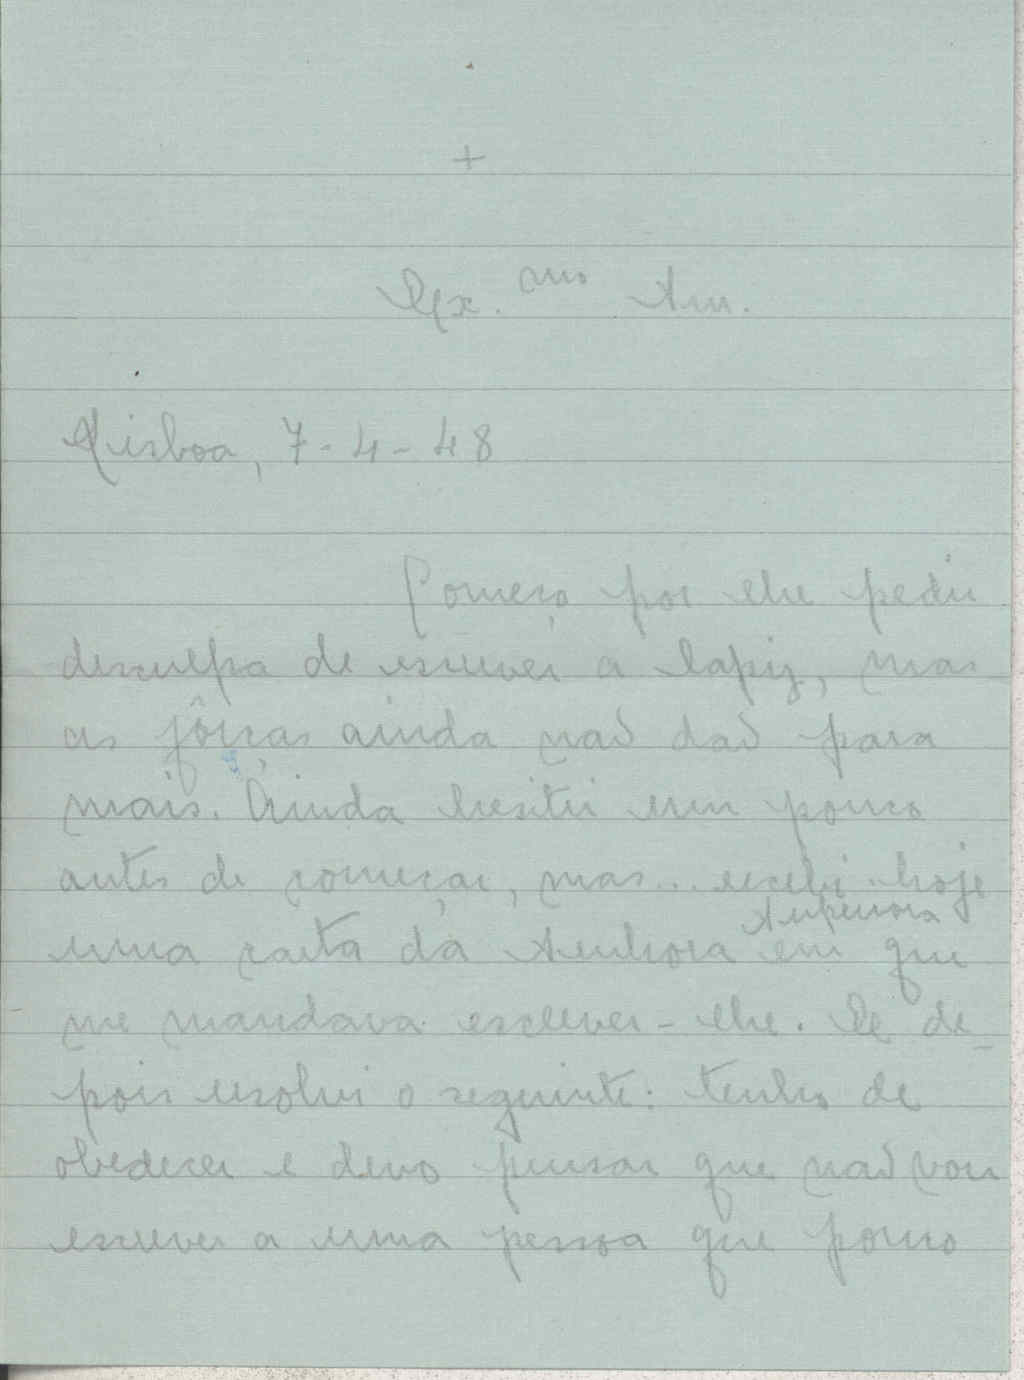 +
Ex.mo Sn.
Lisboa, 7-4-48
Começo por lhe pedir
desculpa de escrever a lapiz, mas
as fôrças ainda não dão para
mais. Ainda hesitei um pouco
antes de começar, mas... recebi hoje
Superiora
uma carta da Senhora em que
me mandava escrever-lhe. E de-
pois resolvi o seguinte: tenho de
obedecer e devo pensar que não vou
escrever a uma pessoa que pouco